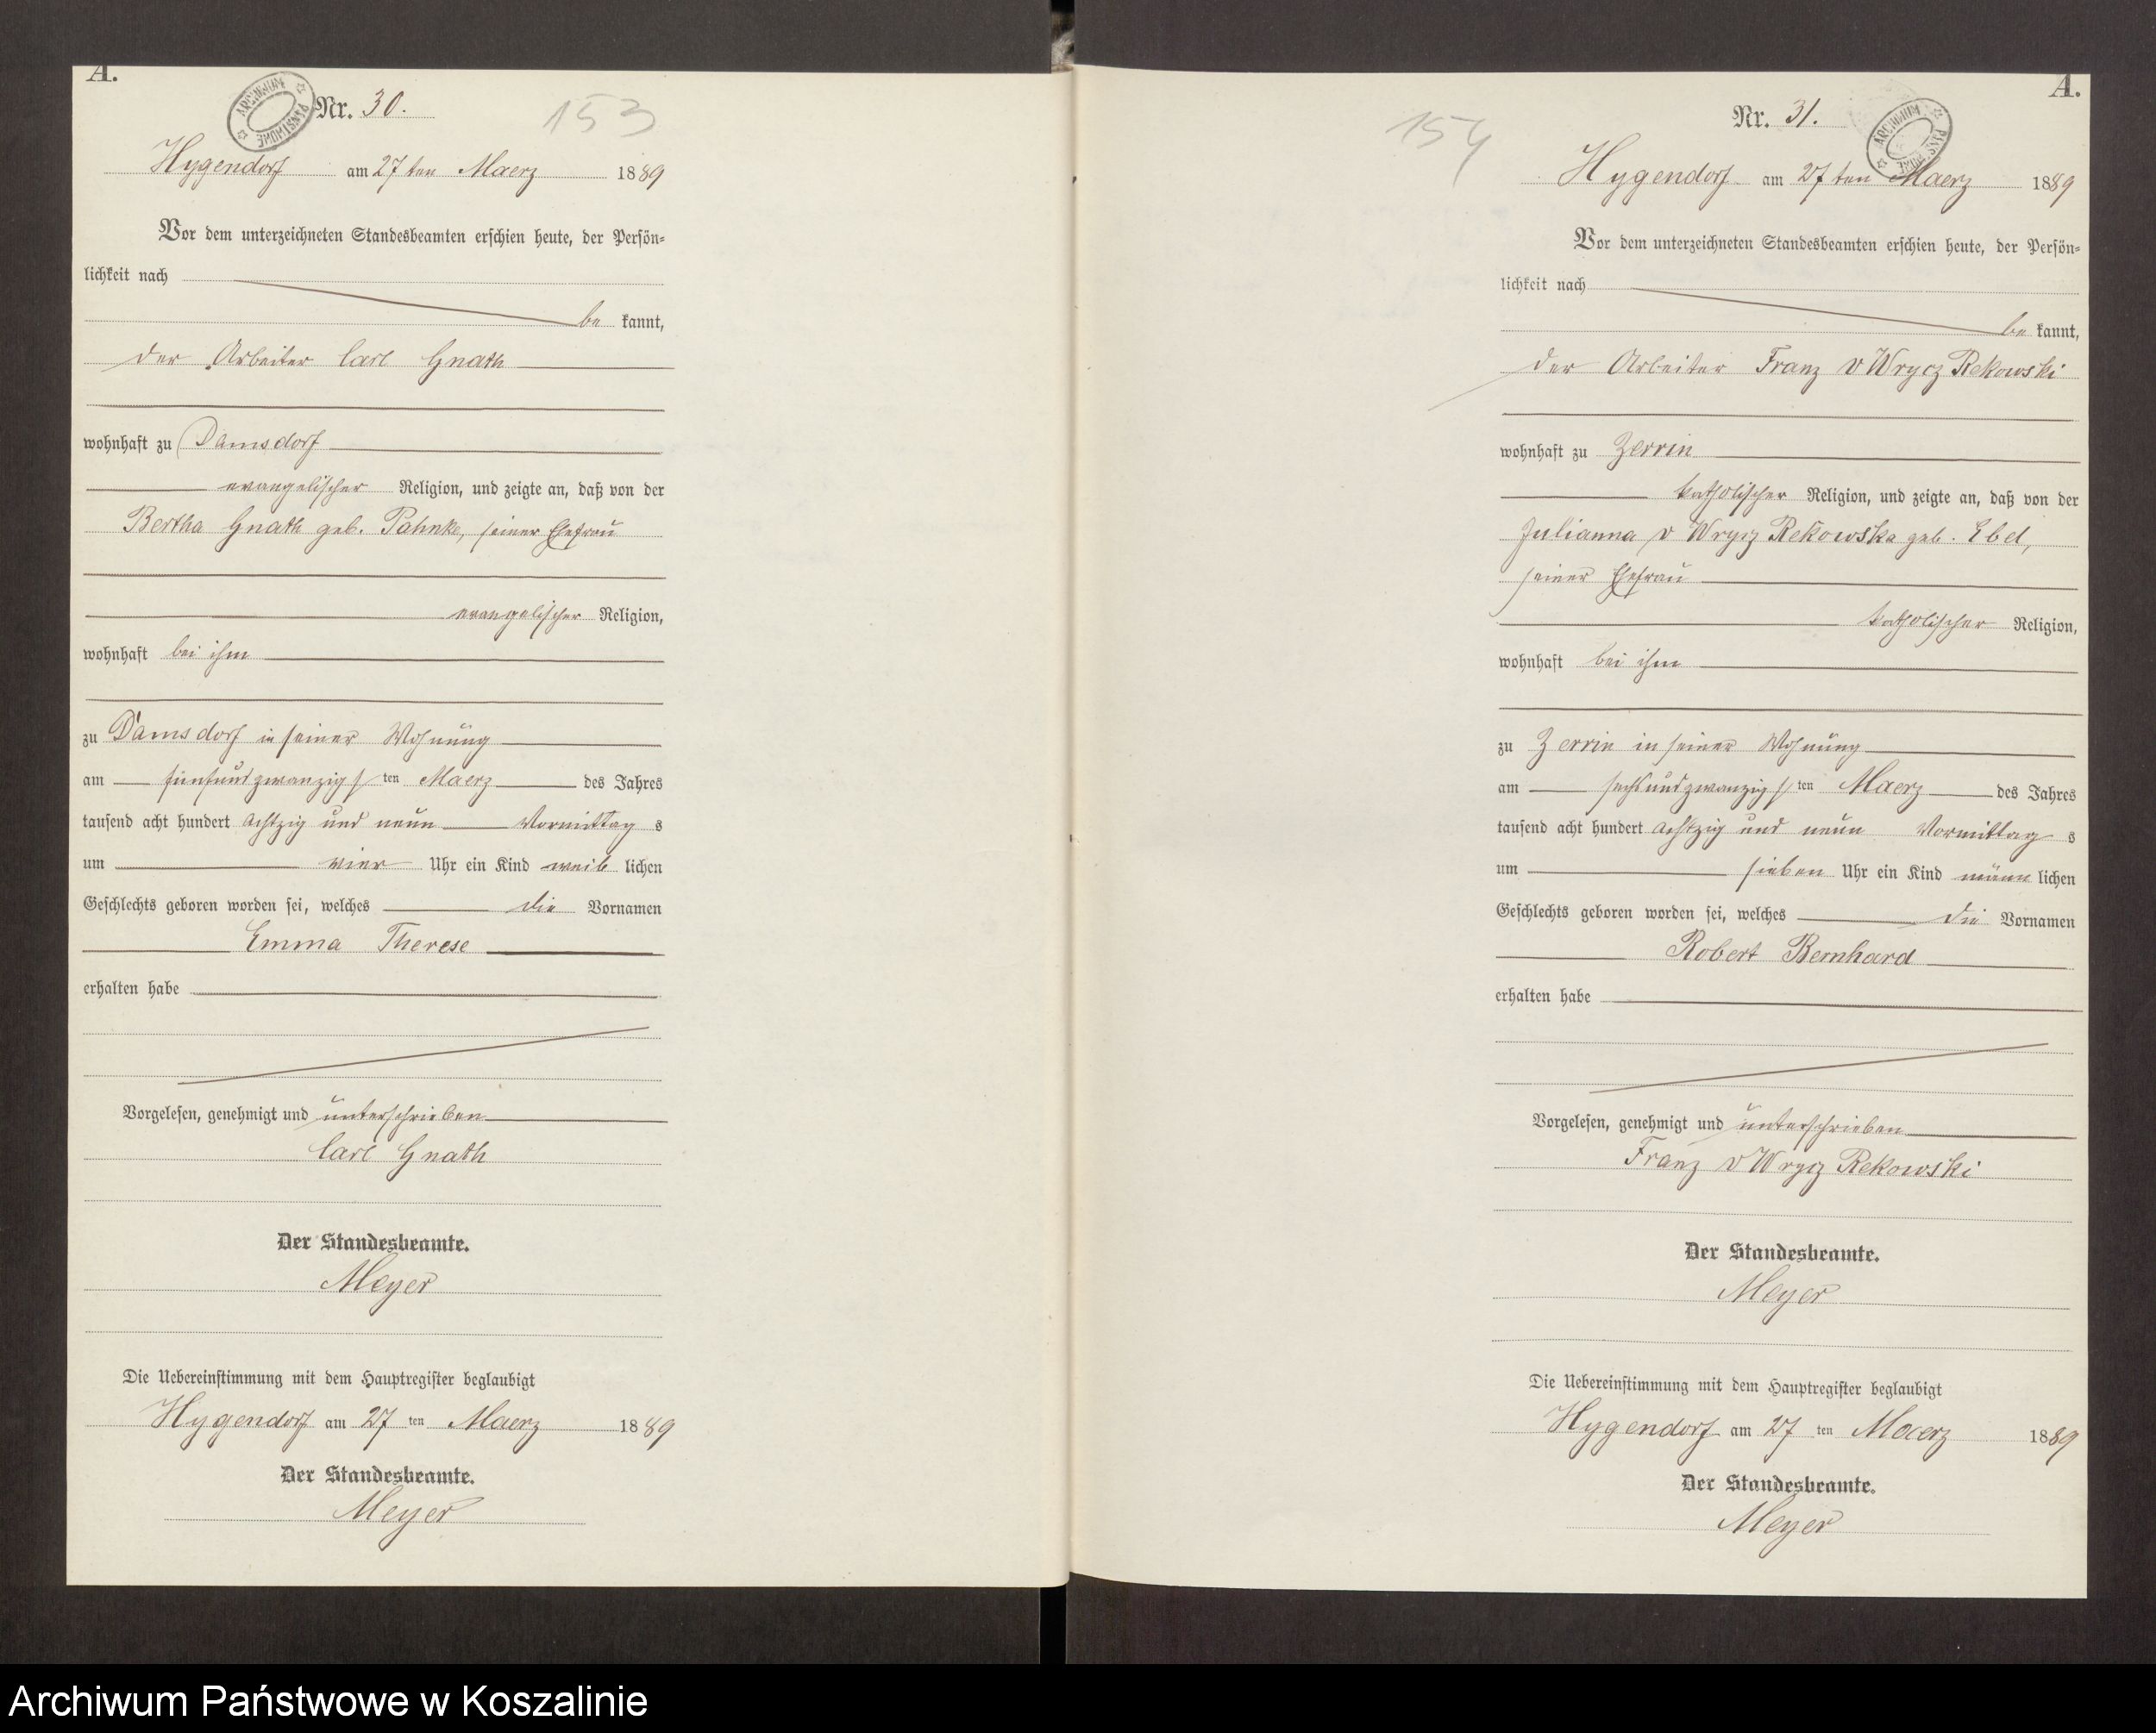 A.
ARCHIWUM PAŃSTWOWE
Nr. 30.
153
Hygendorf am 27 ten Maerz 1889
Vor dem unterzeichneten Standesbeamten erschien heute, der Persön=
lichkeit nach
be kannt,
der Arbeiter Carl Gnath
wohnhaft zu Damsdorf
evangelischer Religion, und zeigte an, daß von der
Bertha Gnath geb. Pahnke, seiner Ehefrau
evangelischer Religion,
wohnhaft bei ihm
zu Damsdorf in seiner Wohnung
am fünfundzwanzigs ten Maerz des Jahres
tausend acht hundert achtzig und neun Vormittag s
um vier Uhr ein Kind weib lichen
Geschlechts geboren worden sei, welches die Vornamen
Emma Therese
erhalten habe
Vorgelesen, genehmigt und unterschrieben
Carl Gnath
Der Standesbeamte.
Meyer
Die Uebereinstimmung mit dem Hauptregister beglaubigt
Hygendorf am 27 ten Maerz 1889
Der Standesbeamte.
Meyer
A.
ARCHIWUM PAŃSTWOWE
Nr. 31.
154
Hygendorf am 27 ten Maerz 1889
Vor dem unterzeichneten Standesbeamten erschien heute, der Persön=
lichkeit nach
be kannt,
der Arbeiter Franz v Wrycz Rekowski
wohnhaft zu Zerrin
katholischer Religion, und zeigte an, daß von der
Julianna v Wrycz Rekowska geb. Ebel,
seiner Ehefrau
katholischer Religion,
wohnhaft bei ihm
zu Zerrin in seiner Wohnung
am sechsundzwanzigs ten Maerz des Jahres
tausend acht hundert achtzig und neun Vormittag s
um sieben Uhr ein Kind männ lichen
Geschlechts geboren worden sei, welches die Vornamen
Robert Bernhard
erhalten habe
Vorgelesen, genehmigt und unterschrieben
Franz v Wrycz Rekowski
Der Standesbeamte.
Meyer
Die Uebereinstimmung mit dem Hauptregister beglaubigt
Hygendorf am 27 ten Maerz 1889
Der Standesbeamte.
Meyer
Archiwum Państwowe w Koszalinie